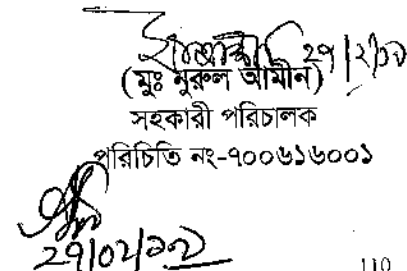 ২৭|২|১০
(মুঃ নুরুল আমীন)
সহকারী পরিচালক
পরিচিতি নং-৭০০৬১৬০০১
২৭|০২|১০
110